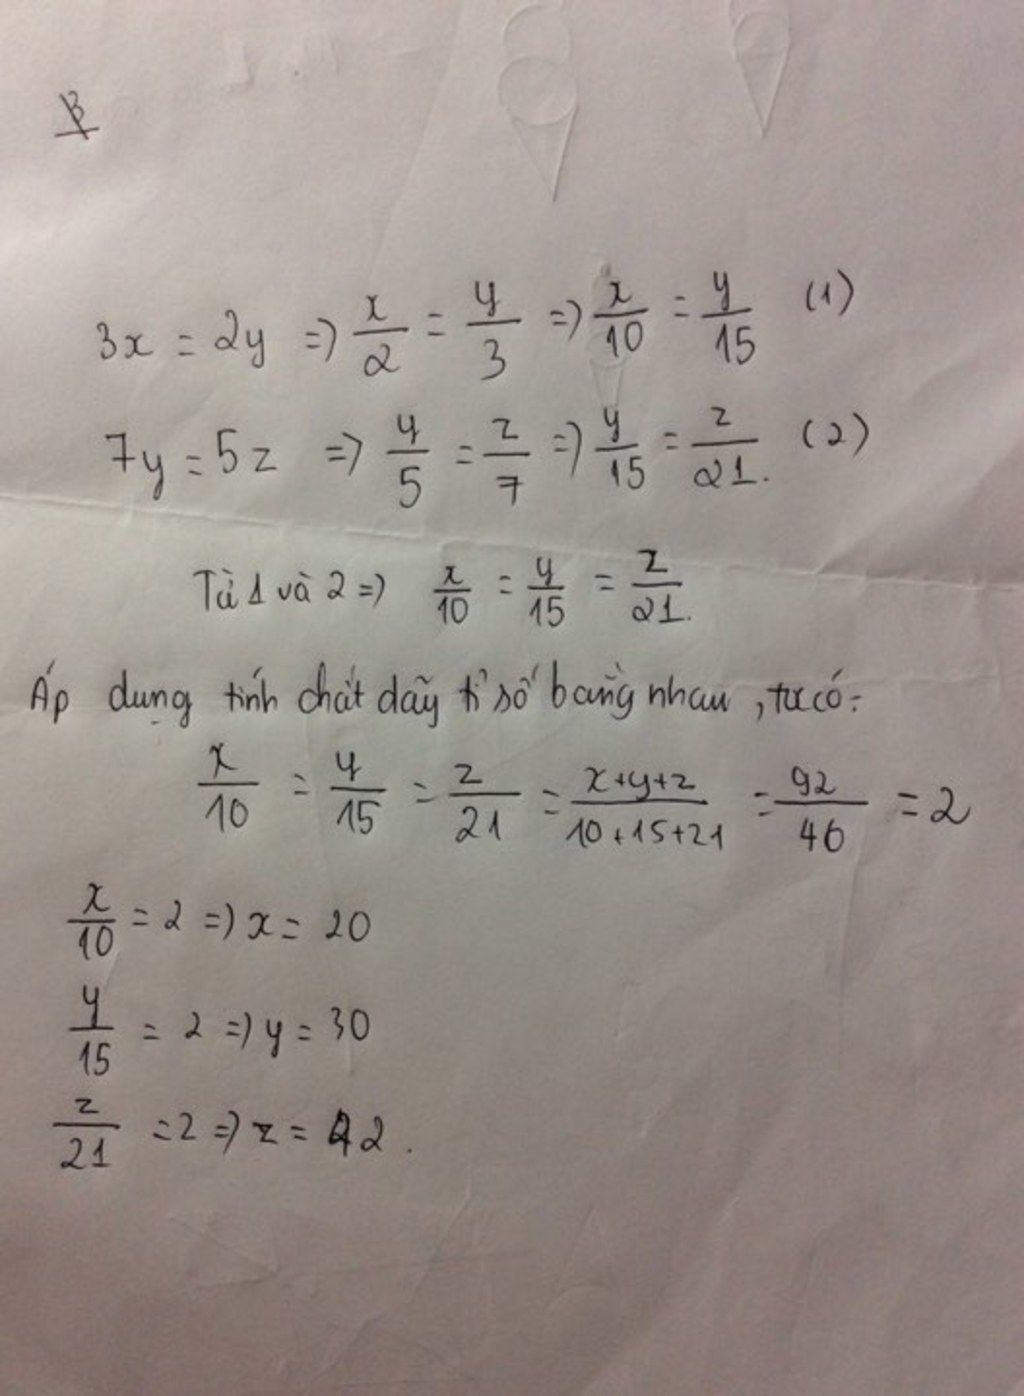 B
3x = 2y => x/2 = y/3 => x/10 = y/15 (1)
7y = 5z => y/5 = z/7 => y/15 = z/21. (2)
Từ 1 và 2 => x/10 = y/15 = z/21.
Áp dụng tính chất dãy tỉ số bằng nhau, ta có:
x/10 = y/15 = z/21 = x+y+z/10+15+21 = 92/46 = 2
x/10 = 2 => x = 20
y/15 = 2 => y = 30
z/21 = 2 => z = 42.